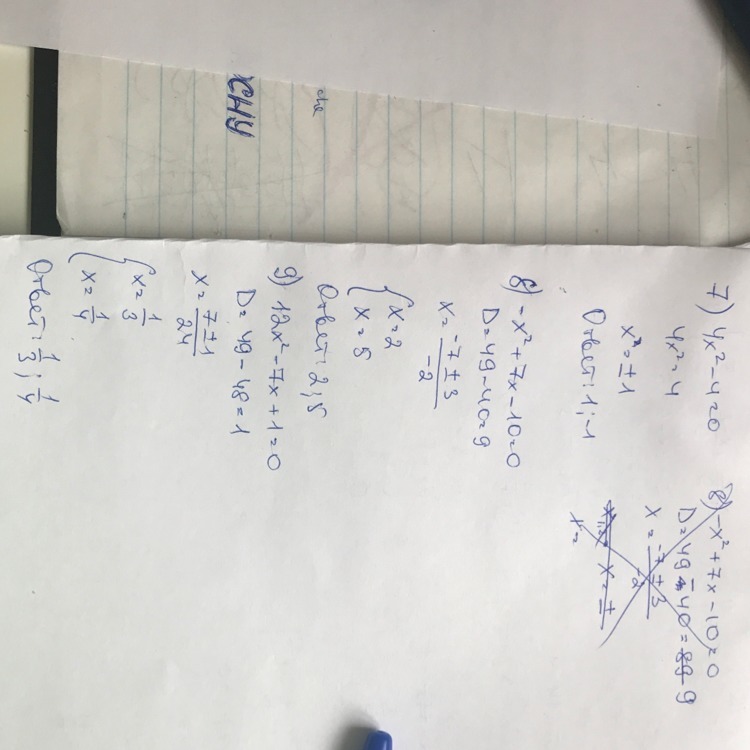 7) 4x²-4=0
4x²=4
x²=±1
Ответ: 1; -1
8) -x²+7x-10=0
D=49-40=9
x=\frac{-7±3}{-2}
{ x=2
x=5
Ответ: 2; 5
9) 12x²-7x+1=0
D=49-48=1
x=\frac{7±1}{24}
{ x=\frac{1}{3}
x=\frac{1}{4}
Ответ: \frac{1}{3}; \frac{1}{4}
8) -x²+7x-10=0
D=49-40=89 9
x=\frac{-7±3}{-2}
x=